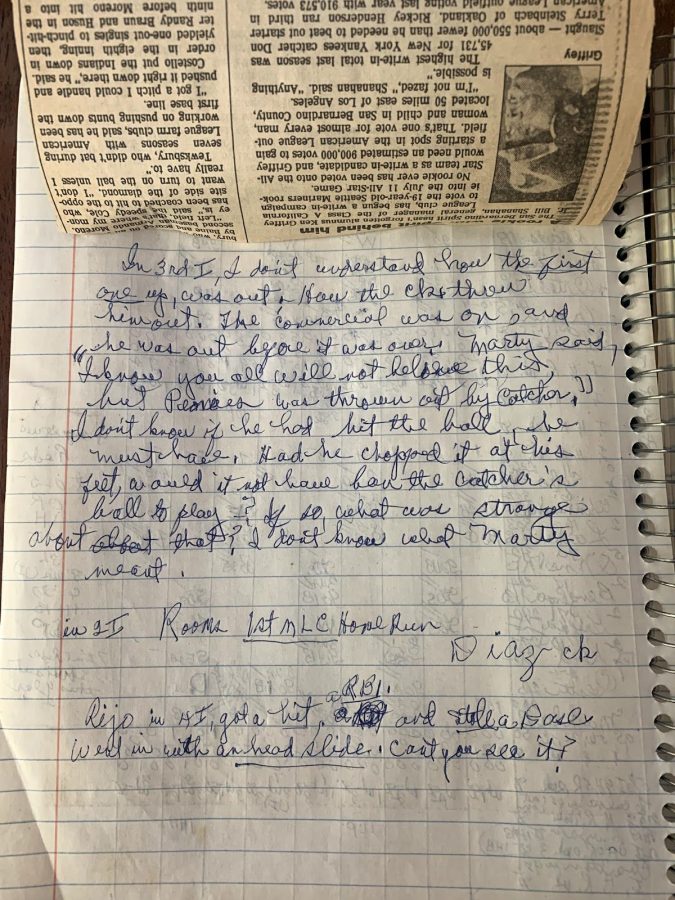 behind him
The San Bernardino Spirit hasn't forgotten alumnus Ken Griffey
Jr. Bill Shanahan, general manager of the Class A California
League club, has begun a write-in campaign
to vote the 19-year-old Seattle Mariners rook-
ie into the July 11 All-Star Game.
No rookie has ever been voted onto the All-
Star team as a write-in candidate, and Griffey
would need an estimated 900,000 votes to gain
a starting spot in the American League out-
field. That's one vote for almost every man,
woman and child in San Bernardino County,
located 50 miles east of Los Angeles.
"I'm not fazed," Shanahan said. "Anything
is possible."
The highest write-in total last season was
45,731 for New York Yankees catcher Don
Slaught — about 550,000 fewer than he needed to beat out starter
Terry Steinbach of Oakland. Rickey Henderson ran third in
American League outfield voting last year with 910,573 votes.
Griffey
has been coached to hit to the oppo-
site side of the diamond. "I don't
want to turn on the ball unless I
really have to."
Tewksbury, who didn't bat during
seven seasons with American
League farm clubs, said he has been
working on pushing bunts down the
first base line.
"I got a pitch I could handle and
pushed it right down there," he said.
Costello put the Indians down in
order in the eighth inning, then
yielded one-out singles to pinch-hit-
ter Randy Braun and Huson in the
ninth before Moreno hit into a
In 3rd I, I don't understand how the first
one up, was out. How the cks threw
him out. The commercial was on, and
he was out before it was over. Marty said,
"I know you all will not believe this,
but was thrown out by Catcher."
I don't know if he had hit the ball, he
must have. Had he chopped it at his
feet, would it not have ben the catcher's
ball to play-? If so, what was strange
about about that? I don't know what Marty
meant.
in 2I Rooms 1st MLC Home Run
Diaz ck
a RBI.
Rijo in 4I, got a hit, and stole a Base
went in with an head slide. Can't you see it?